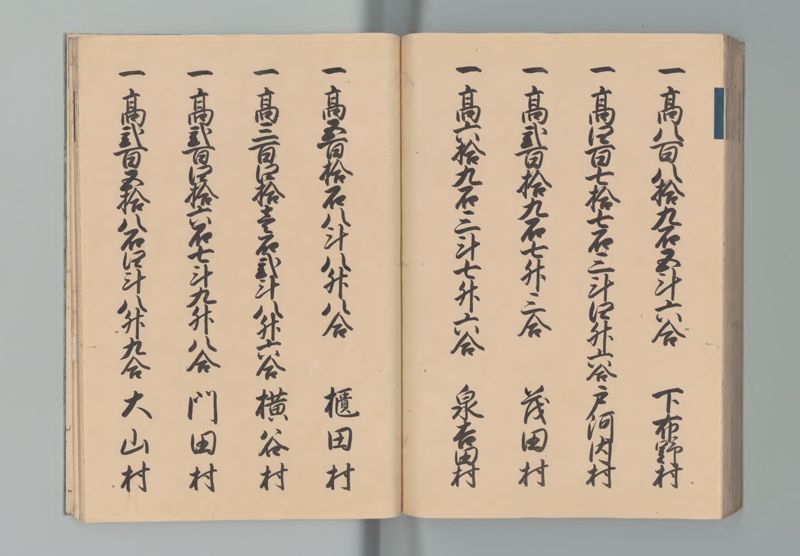 一高八百八拾九石五斗六合 下布野村
一高四百七拾七石三斗四升六合 戸河内村
一高弐百拾九石七升三合 茂田村
一高六拾九石三斗七升六合 泉吉田村
一高五百拾石八斗八升八合 櫃田村
一高三百四拾壱石弐斗八升六合 横谷村
一高弐百四拾六石七斗九升八合 門田村
一高弐百五拾八石四斗八升九合 大山村